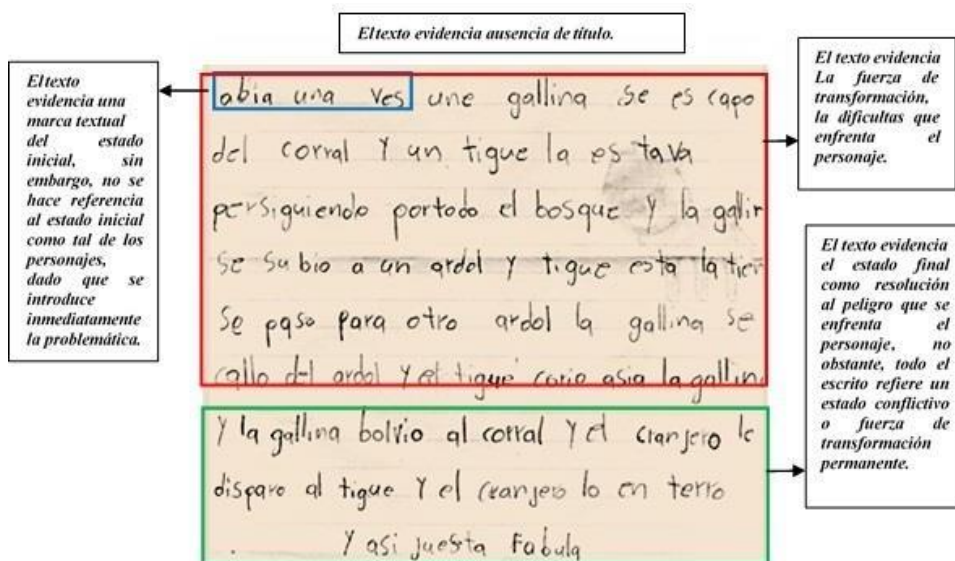 El texto evidencia ausencia de título.
El texto
evidencia una
marca textual
del estado
inicial, sin
embargo, no se
hace referencia
al estado inicial
como tal de los
personajes,
dado que se
introduce
inmediatamente
la problemática.
abia una ves une gallina se es capo
del corral Y un tigue la es tava
persiguiendo portodo el bosque Y la gallin
se subio a un ardol Y tigue esta la tier
Se paso para otro ardol la gallina se
callo del ardol Y el tigue corio asia la gallina
Y la gallina bolvio al corral Y el cranjero le
disparo al tigue Y el cranjero lo en terro
Y asi juesta Fabula
El texto evidencia
La fuerza de
transformación,
la dificultas que
enfrenta el
personaje.
El texto evidencia
el estado final
como resolución
al peligro que se
enfrenta el
personaje, no
obstante, todo el
escrito refiere un
estado conflictivo
o fuerza de
transformación
permanente.